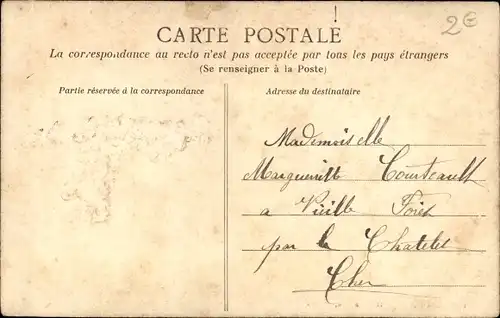 2€
CARTE POSTALE
La correspondance au recto n'est pas acceptée par tous les pays étrangers
(Se renseigner à la Poste)
Partie réservée à la correspondance
Adresse du destinataire
Mademoiselle
Margueritte Courteault
a Vieille Foret
par le Chatelet
Cher